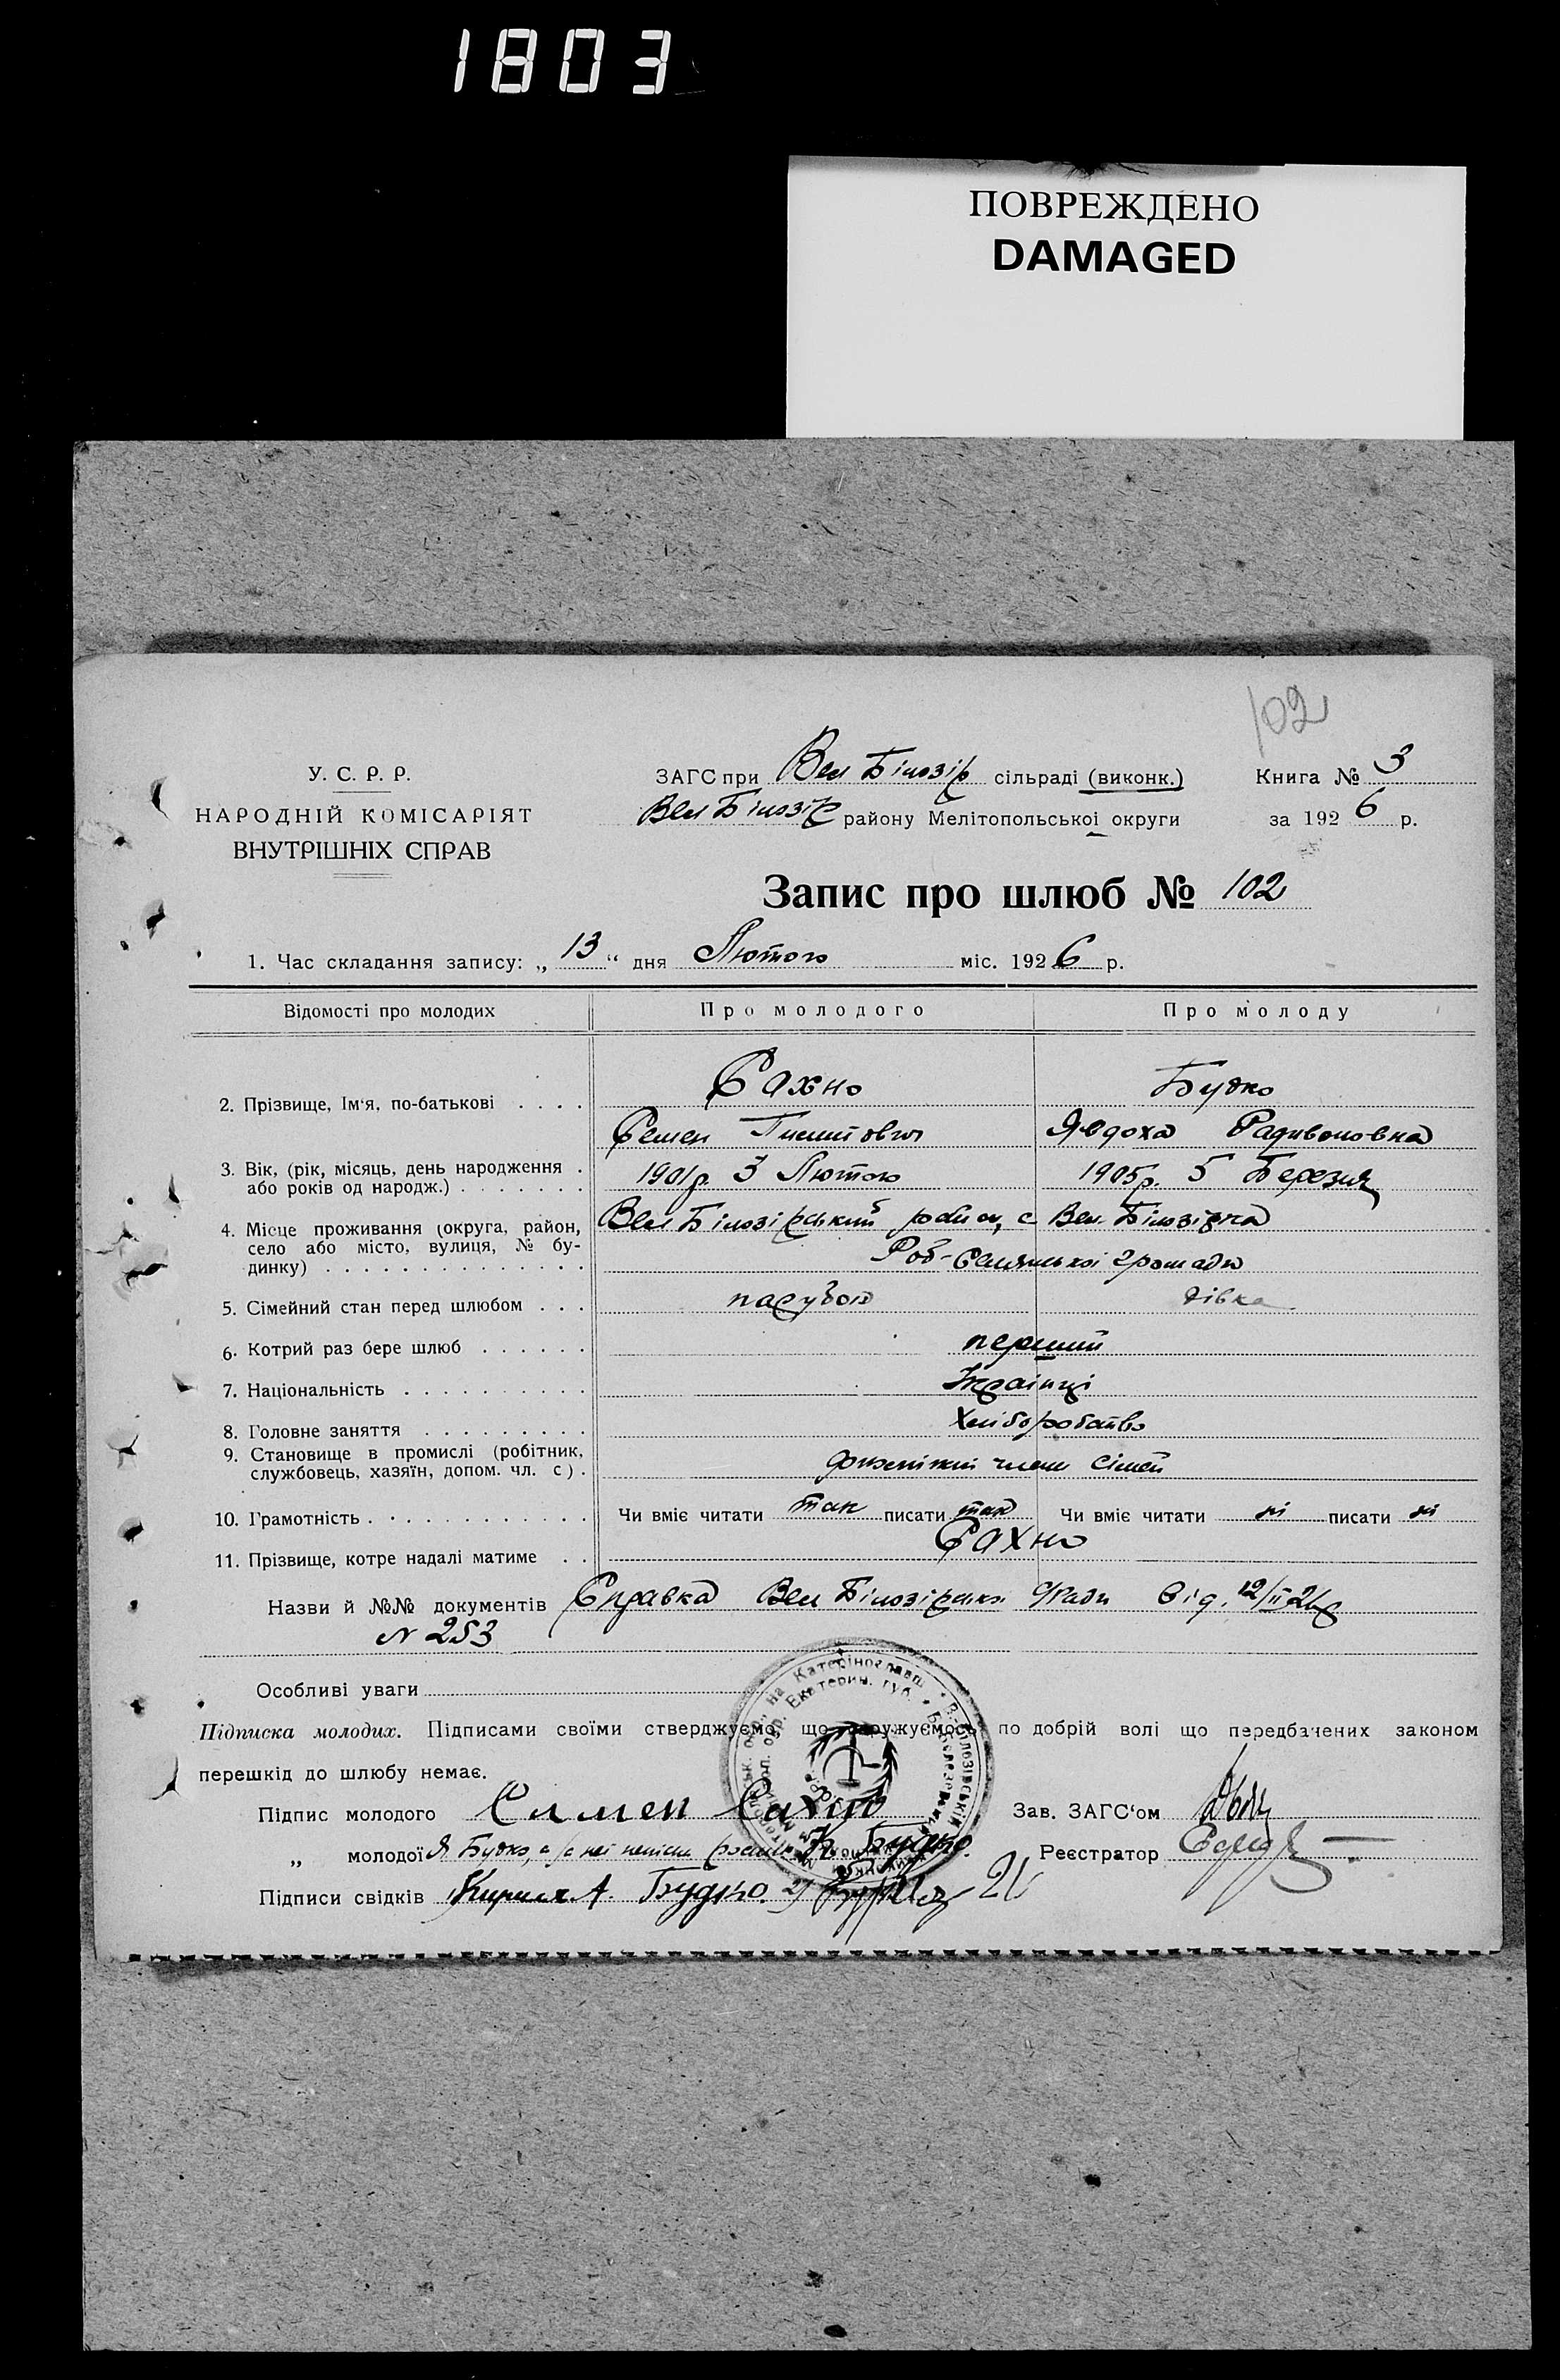 1803
ПОВРЕЖДЕНО
DAMAGED
102
У. С. Р. Р.
НАРОДНІЙ КОМІСАРІЯТ
ВНУТРІШНІХ СПРАВ
ЗАГС при Вел Білозір сільраді (виконк.) Книга № 3
Вел Білозір району Мелітопольської округи за 1926 р.
Запис про шлюб № 102
1. Час складання запису: „13“ дня Лютого міс. 1926 р.
Відомості про молодих Про молодого Про молоду
2. Прізвище, Ім'я, по-батькові . . . . Сахно Будко
Семен Явдоха Радивоновна
3. Вік, (рік, місяць, день народження . або років од народж.) . . . . . . . 1901р. 3 Лютого 1905р. 5 Березня
4. Місце проживання (округа, район, Вел Білозірський район, с Вел. Білозірка
село або місто, вулиця, № бу-
динку) . . . . . . . . . . . . . . Роб-Селянської громади
5. Сімейний стан перед шлюбом . . . парубок дівка
6. Котрий раз бере шлюб . . . . . . перший
7. Національність . . . . . . . . . . Українці
8. Головне заняття . . . . . . . . . Хліборобство
9. Становище в промислі (робітник,
службовець, хазяїн, допом. чл. с) . член сімей
10. Грамотність . . . . . . . . . . . . Чи вміє читати так писати так Чи вміє читати ні писати ні
11. Прізвище, котре надалі матиме . . Сахно
Назви й №№ документів Справка Вел Білозірськ. Ради від. 12/II 26р
N 253
Особливі уваги
Підписка молодих. Підписами своїми стверджуємо, що одружуємось по добрій волі що передбачених законом
перешкід до шлюбу немає.
Підпис молодого Семен Сахно Зав. ЗАГС'ом
„ молодої Я Будко, а за неї К Будко. Реєстратор
Підписи свідків Кирил А Будко. 2)